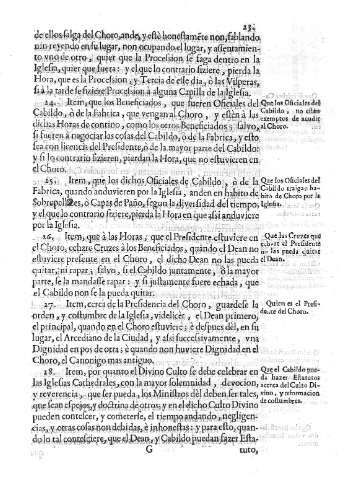 23.
de ellos salga del Choro, ande, y estè honestamẽte non, fablando,
nin reyendo en su lugar, non ocupando el lugar, y assentamien-
to vno de otro, quier que la Procession se faga dentro en la
Iglesia, quier que fuera: y el que lo contrario fiziere, pierda la
Hora, que es la Procession, y Tercia de esse dia, ò las Visperas,
si à la tarde se fiziere Procession à alguna Capilla de la Iglesia.
24. Item, que los Beneficiados, que fueren Oficiales del
Cabildo, ò de la Fabrica, que vengan al Choro, y estèn à las
dichas Horas del contino, como los otros Beneficiados; salvo,
si fueren à negociar las cosas del Cabildo, ò de la Fabrica, y esto
sea con licencia del Presidente, ò de la mayor parte del Cabildo;
y si lo contrario fizieren, pierdan la Hora, que no estuvieren en
el Choro.
Que los Oficiales del
Cabildo, no estèn
exemptos de acudir
al Choro.
25. Item, que los dichos Oficiales de Cabildo, ò de la
Fabrica, quando anduvieren por la Iglesia, anden en habito de
Sobrepellizes, ò Capas de Paño, segun la diversidad del tiempo,
y el que lo contrario fiziere, pierda la Hora en que assi anduviere
por la Iglesia.
Que los Oficiales del
Cabildo traigan ha-
bito de Choro por la
Iglesia.
26. Item, que à las Horas, que el Presidente estuviere en
el Choro, echare Cruzes à los Beneficiados, quando el Dean no
estuviere presente en el Choro, el dicho Dean no las pueda
quitar, ni rapar; salvo, si el Cabildo juntamente, ò la mayor
parte, se la mandasse rapar: y si justamente fuere echada, que
el Cabildo non se la pueda quitar.
Que las Cruzes que
echare el Presidente
no las pueda quitar
el Dean.
27. Item, cerca de la Presidencia del Choro, guardese la
orden, y costumbre de la Iglesia, videlicèt, el Dean primero,
el principal, quando en el Choro estuviere; è despues dèl, en su
lugar, el Arcediano de la Ciudad, y assi successivamente, vna
Dignidad en pos de otra; è quando non huviere Dignidad en el
Choro, el Canonigo mas antiguo.
Quien es el Presi-
dente del Choro.
28. Item, por quanto el Divino Culto se debe celebrar en
las Iglesias Cathedrales, con la mayor solemnidad, devocion,
y reverencia, que ser pueda, los Ministros dèl deben ser tales,
que sean espejos, y doctrina de otros; y en el dicho Culto Divino
pueden contecer, y cometerse, el tiempo andando, negligen-
cias, y otras cosas non debidas, è inhonestas: y para esto, quan-
do lo tal contesciere, que el Dean, y Cabildo puedan fazer Esta-
Que el Cabildo pue-
da hazer Estatutos
acerca del Culto Di-
vino, y reformacion
de costumbres.
G
tuto,